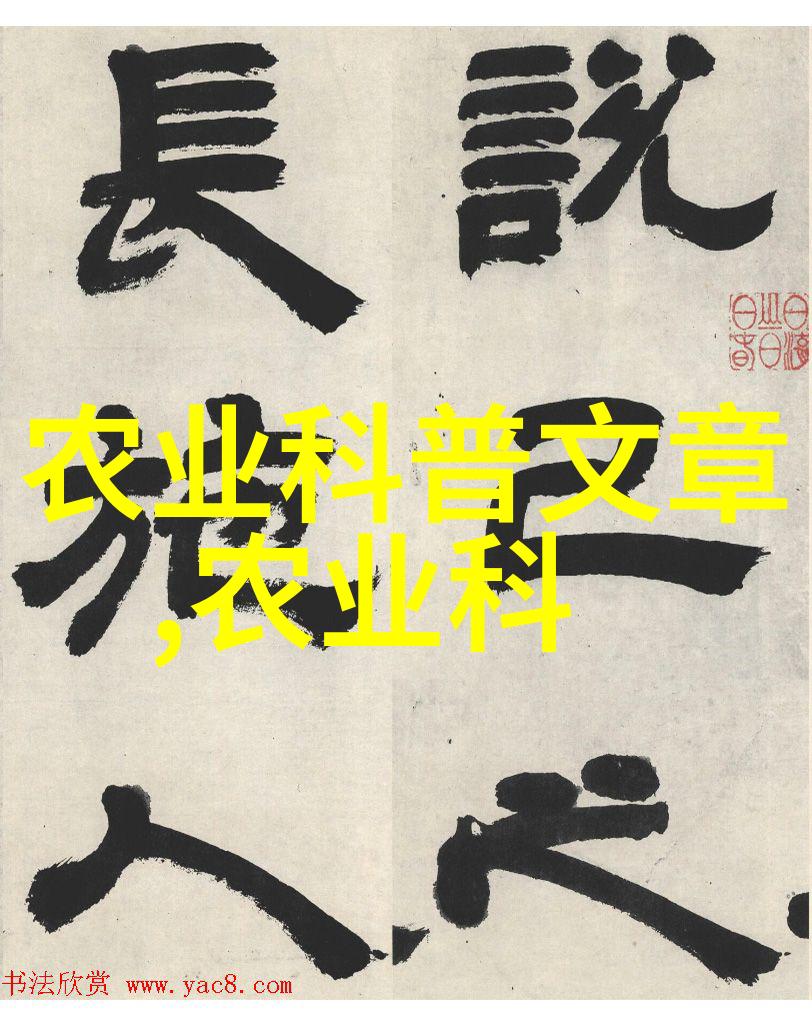 說己之
長施人
农业科普文章
,农业科
书法欣赏 www.yac8.com